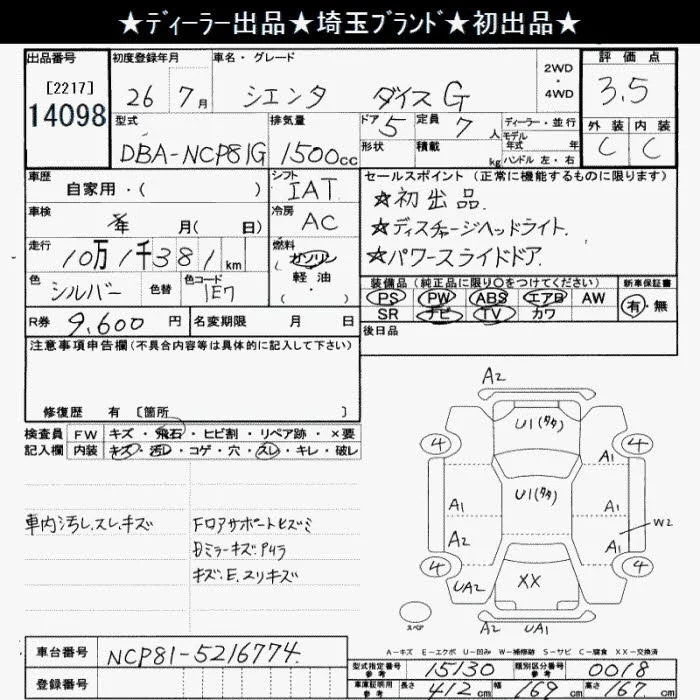 ★ディーラー出品★埼玉ブランド★初出品★
出品番号 初度登録年月 車名・グレード 2WD・4WD 評価点
[2217] 26 7月 シエンタ ダイスG 3.5
14098
外装 内装
C C
型式 排気量 ドア 5 定員 7人 ディーラー・並行
DBA-NCP81G 1500cc 形状 積載 kg モデル年式 年
ハンドル 左・右
車歴 シフト セールスポイント(正常に機能するものに限ります)
自家用・( ) IAT ☆初出品.
車検 年 月( 日) 冷房 AC ☆ディスチャージヘッドライト.
走行 燃料 ☆パワースライドドア.
10万1千381km ガソリン
軽油
( )
色 色替 色コード 装備品(純正品に限り○をつけてください) 新車保証書
シルバー 1E7 PS PW ABS エアB AW 有・無
SR ナビ TV カワ
R券 9,600円 名変期限 月 日 後日品
注意事項申告欄(不具合内容等は具体的に記入して下さい)
修復歴 有 [箇所 ]
検査員 FW キズ・飛石・ヒビ割・リペア跡・×要
記入欄 内装 キズ・汚レ・コゲ・穴・スレ・キレ・破レ
車内汚レ.スレ.キズ Fロアサポートヒズミ
Dミラーキズ.P4ラ
キズ.E.スリキズ
A2
U1(タタ)
4 4
A1
U1(タタ)
A1 A1
W2
A2 A1
4 4
UA2 XX
スペア A2 UA1
A-キズ E-エクボ U-凹み W-補修跡 S-サビ C-腐食 XX-交換済
車台番号 NCP81-5216774.
登録番号
型式指定番号 参考 15130 類別区分番号 参考 0018
車庫証明用 参考 長さ 412cm 幅 169cm 高さ 167cm